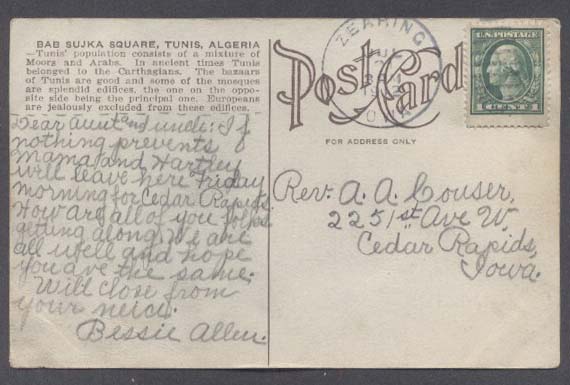 BAB SUJKA SQUARE, TUNIS, ALGERIA
—Tunis' population consists of a mixture of
Moors and Arabs. In ancient times Tunis
belonged to the Carthagians. The bazaars
of Tunis are good and some of the mosques
are splendid edifices, the one on the oppo-
site side being the principal one. Europeans
are jealously excluded from these edifices.
Dear Aunt and uncle: If
nothing prevents
Mama and Hartley
will leave here Friday
morning for Cedar Rapids.
How are all of you folks
getting along. We are
all well and hope
you are the same.
Will close from
your neice.
Bessie Allen.
ZEARING
JUL
Post Card
FOR ADDRESS ONLY
U.S. POSTAGE
1 CENT 1
Rev. A. A. Couser,
22 51st Ave W.
Cedar Rapids,
Iowa.